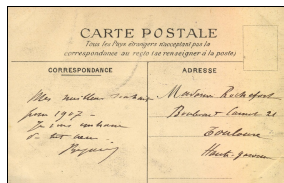 CARTE POSTALE
Tous les Pays étrangers n'acceptent pas la
correspondance au recto (se renseigner à la poste)
CORRESPONDANCE
ADRESSE
Mes meilleurs souhaits
pour 1907 -
Je suis
de tout cœur
Monsieur Rochefort
Boulevard Carnot 21
Toulouse
Haute-Garonne